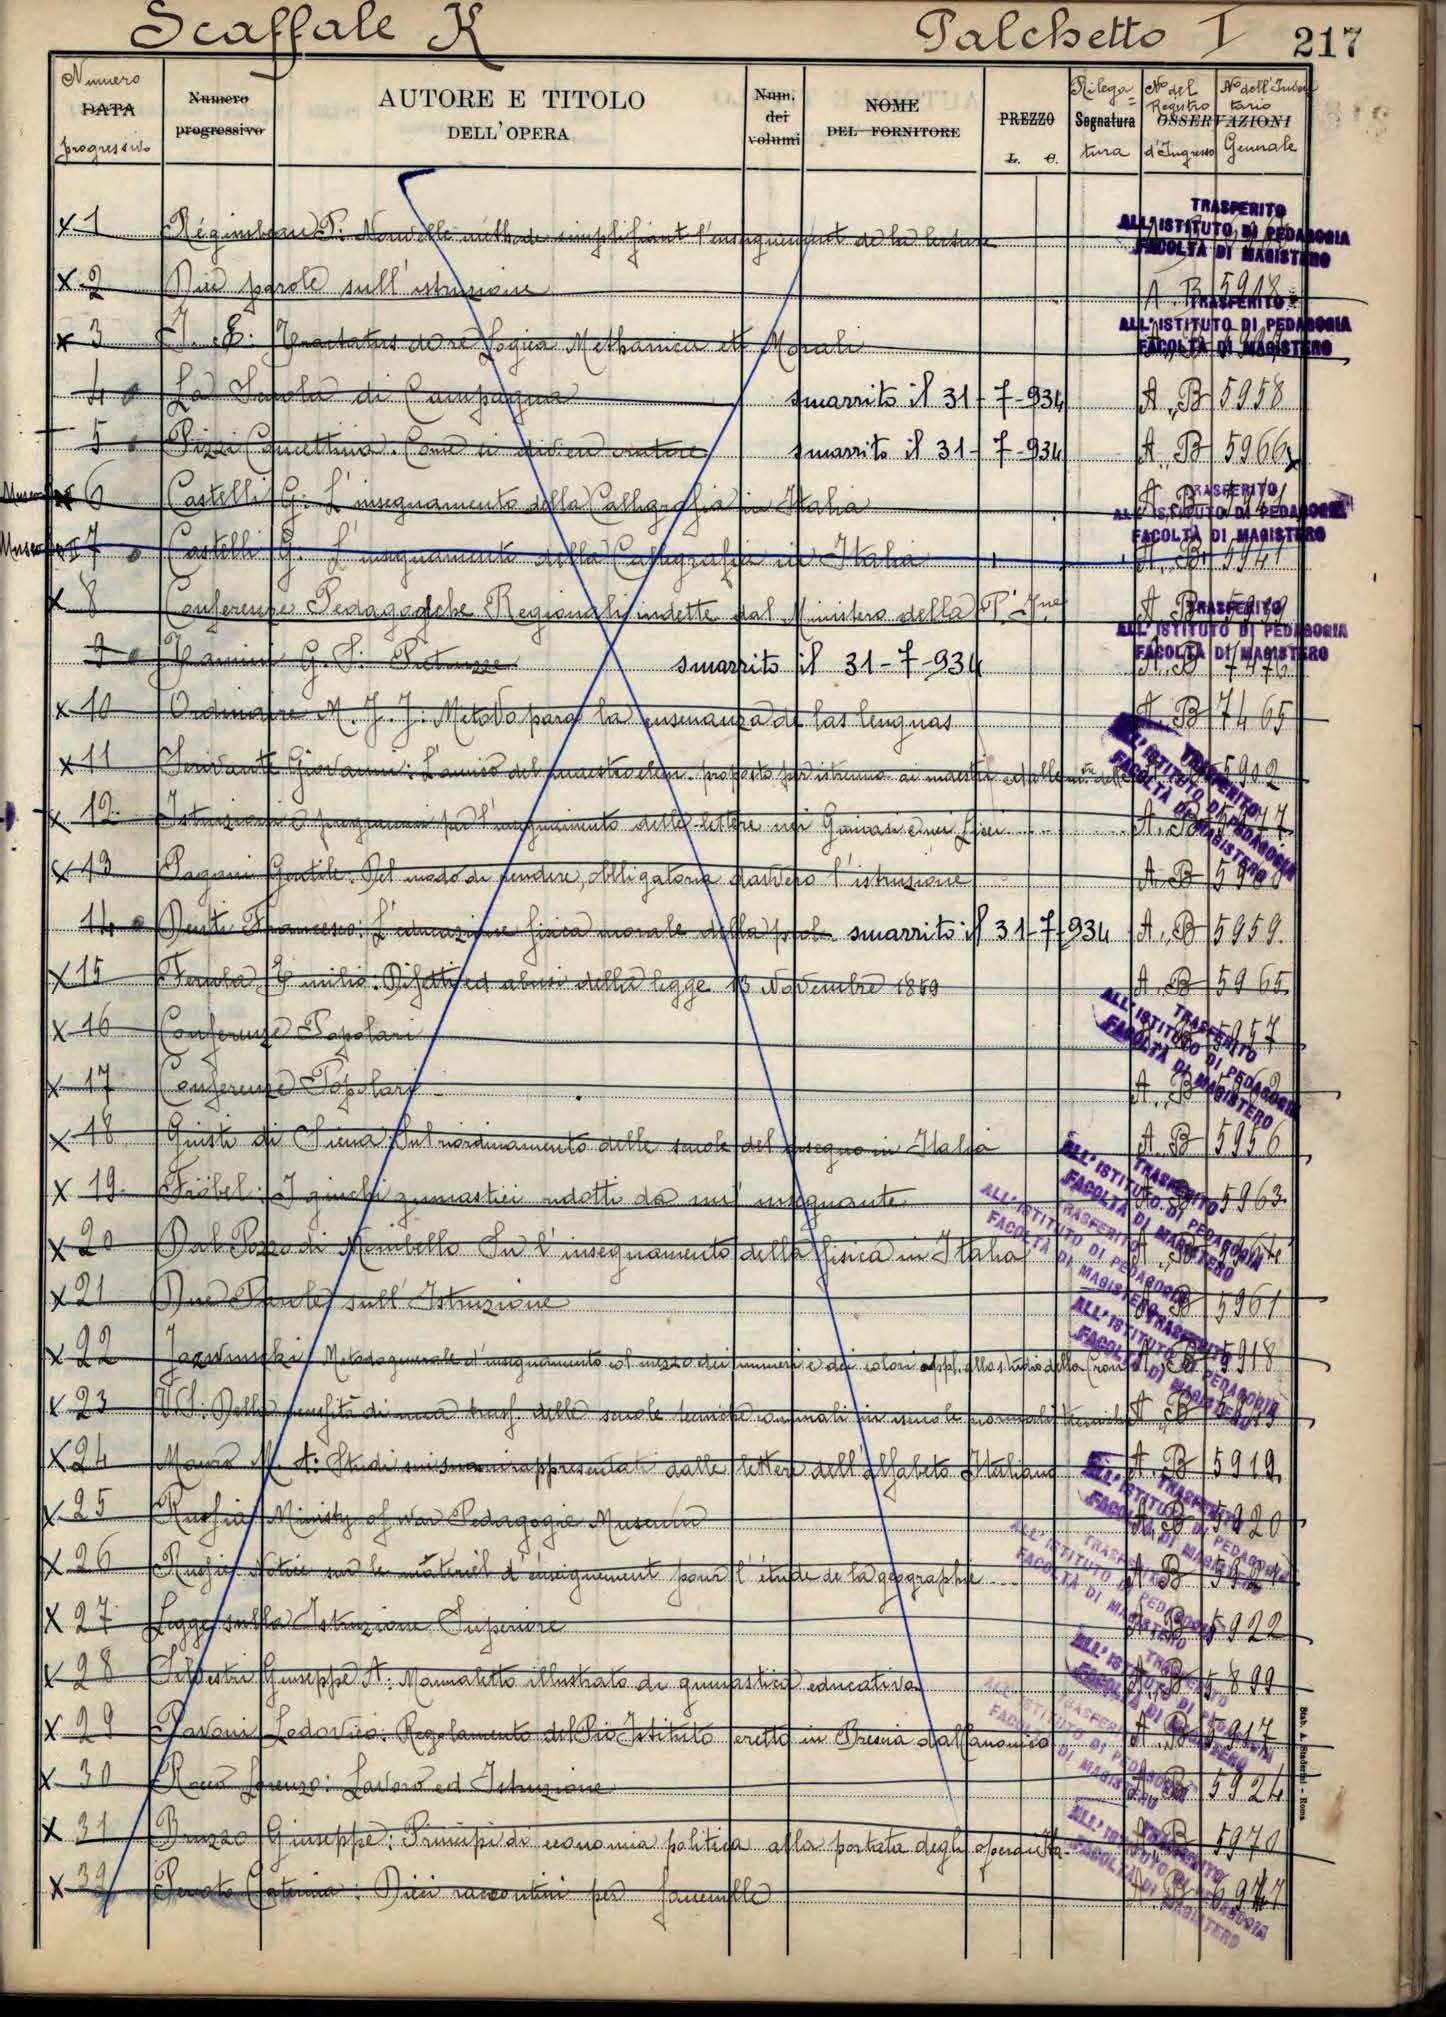 Scaffale K Palchetto I 217
Numero DATA progressivo
Numero progressivo
AUTORE E TITOLO DELL'OPERA
Num. dei volumi
NOME DEL FORNITORE
PREZZO L. C.
Rilega= Segnatura tura
No del Registro d'Ingresso
OSSERVAZIONI
No dell'Inventario Generale
TRASFERITO
ALL'ISTITUTO DI PEDAGOGIA
FACOLTÀ DI MAGISTERO
x 1 Régimbeau P: Nouvelle méthode simplifiant l'enseignement de la lecture
x 2 parole sull'istruzione A. B 5918
TRASFERITO
ALL'ISTITUTO DI PEDAGOGIA
FACOLTÀ DI MAGISTERO
x 3 Tractatus de re Logica Methanica et Morali
4 La Scuola di Campagna smarrito il 31-7-934 A. B 5958
5 Pizzi Concettina. Come si divien smarrito il 31-7-934 A. B 5966
Museo 6 Castelli G: L'insegnamento della Calligrafia in Italia A. B 5941
TRASFERITO
ALL'ISTITUTO DI PEDAGOGIA
FACOLTÀ DI MAGISTERO
Museo II 7 Castelli G. L'insegnamento della Calligrafia in Italia A. B. 5941
x 8 Conferenze Pedagogiche Regionali indette dal Ministero della P. Ine A. B
TRASFERITO
ALL'ISTITUTO DI PEDAGOGIA
FACOLTÀ DI MAGISTERO
9 G. smarrito il 31-7-934 A. B 7476
x 10 Ordinaire M. J. J: Metodo para la ensenanza de las lenguas A. B 7465
x 11 Giovanni: del maestro elem. proposto ai maestri 5902
x 12 Istruzioni e programmi per l'insegnamento delle lettere nei Ginnasi e nei Licei A. B
TRASFERITO
ALL'ISTITUTO DI PEDAGOGIA
FACOLTÀ DI MAGISTERO
x 13 Pagani Gentile. Del modo di rendere obbligatoria davvero l'istruzione A. B
14 Denti Francesco: L'educazione fisica morale della smarrito il 31-7-934 A. B 5959.
x 15 Emilio: Difetti ed abusi della legge 13 Novembre 1859 A. B 5965
x 16 Conferenze Popolari 5957
TRASFERITO
ALL'ISTITUTO DI PEDAGOGIA
FACOLTÀ DI MAGISTERO
x 17 Conferenze Popolari A. B
x 18 Giusti di Siena: Sul riordinamento delle scuole del disegno in Italia A. B 5956
x 19 Fröbel: I giuochi ginnastici ridotti da un' insegnante 5963
TRASFERITO
ALL'ISTITUTO DI PEDAGOGIA
FACOLTÀ DI MAGISTERO
x 20 Dal Pozzo di Mombello Su l'insegnamento della fisica in Italia
TRASFERITO
ALL'ISTITUTO DI PEDAGOGIA
FACOLTÀ DI MAGISTERO
x 21 Due Parole sull'Istruzione B 5961
x 22 Jazwinski Metodo generale d'insegnamento col mezzo dei numeri e dei colori appl. allo studio della Cron. 5918
TRASFERITO
ALL'ISTITUTO DI PEDAGOGIA
FACOLTÀ DI MAGISTERO
x 23 V.S. Della necessità di una trasf. delle scuole tecniche comunali in iscuole normali A. B
x 24 Mauro M. A: Studi rappresentati dalle lettere dell'alfabeto Italiano A. B 5919.
x 25 Russia Ministy of war Pedagogic Museum A. B 5920
TRASFERITO
ALL'ISTITUTO DI PEDAGOGIA
FACOLTÀ DI MAGISTERO
x 26 Russie Notice sur le matériel d'enseignement pour l'étude de la geographie A. B 5921
TRASFERITO
ALL'ISTITUTO DI PEDAGOGIA
FACOLTÀ DI MAGISTERO
x 27 Legge sulla Istruzione Superiore A. B 5922
x 28 Silvestri Giuseppe A: Manualetto illustrato di ginnastica educativa A. B 5899
TRASFERITO
ALL'ISTITUTO DI PEDAGOGIA
FACOLTÀ DI MAGISTERO
x 29 Pavoni Lodovico: Regolamento del Pio Istituto eretto in Brescia dal Canonico A. B 5917
TRASFERITO
ALL'ISTITUTO DI PEDAGOGIA
FACOLTÀ DI MAGISTERO
x 30 Rocco Lorenzo: Lavoro ed Istruzione A. B 5924
x 31 Bruzzo Giuseppe: Principi di economia politica alla portata degli A. B 5970
TRASFERITO
ALL'ISTITUTO DI PEDAGOGIA
FACOLTÀ DI MAGISTERO
x 32 Caterina: Dieci raccontini per fanciulle A. B